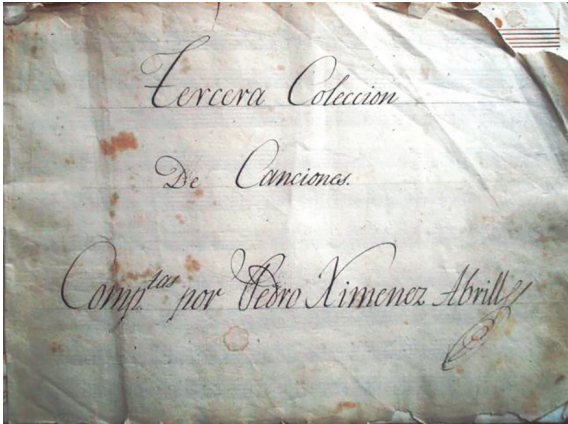 Tercera Coleccion
De Canciones.
Comp.tas por Pedro Ximenez Abrill